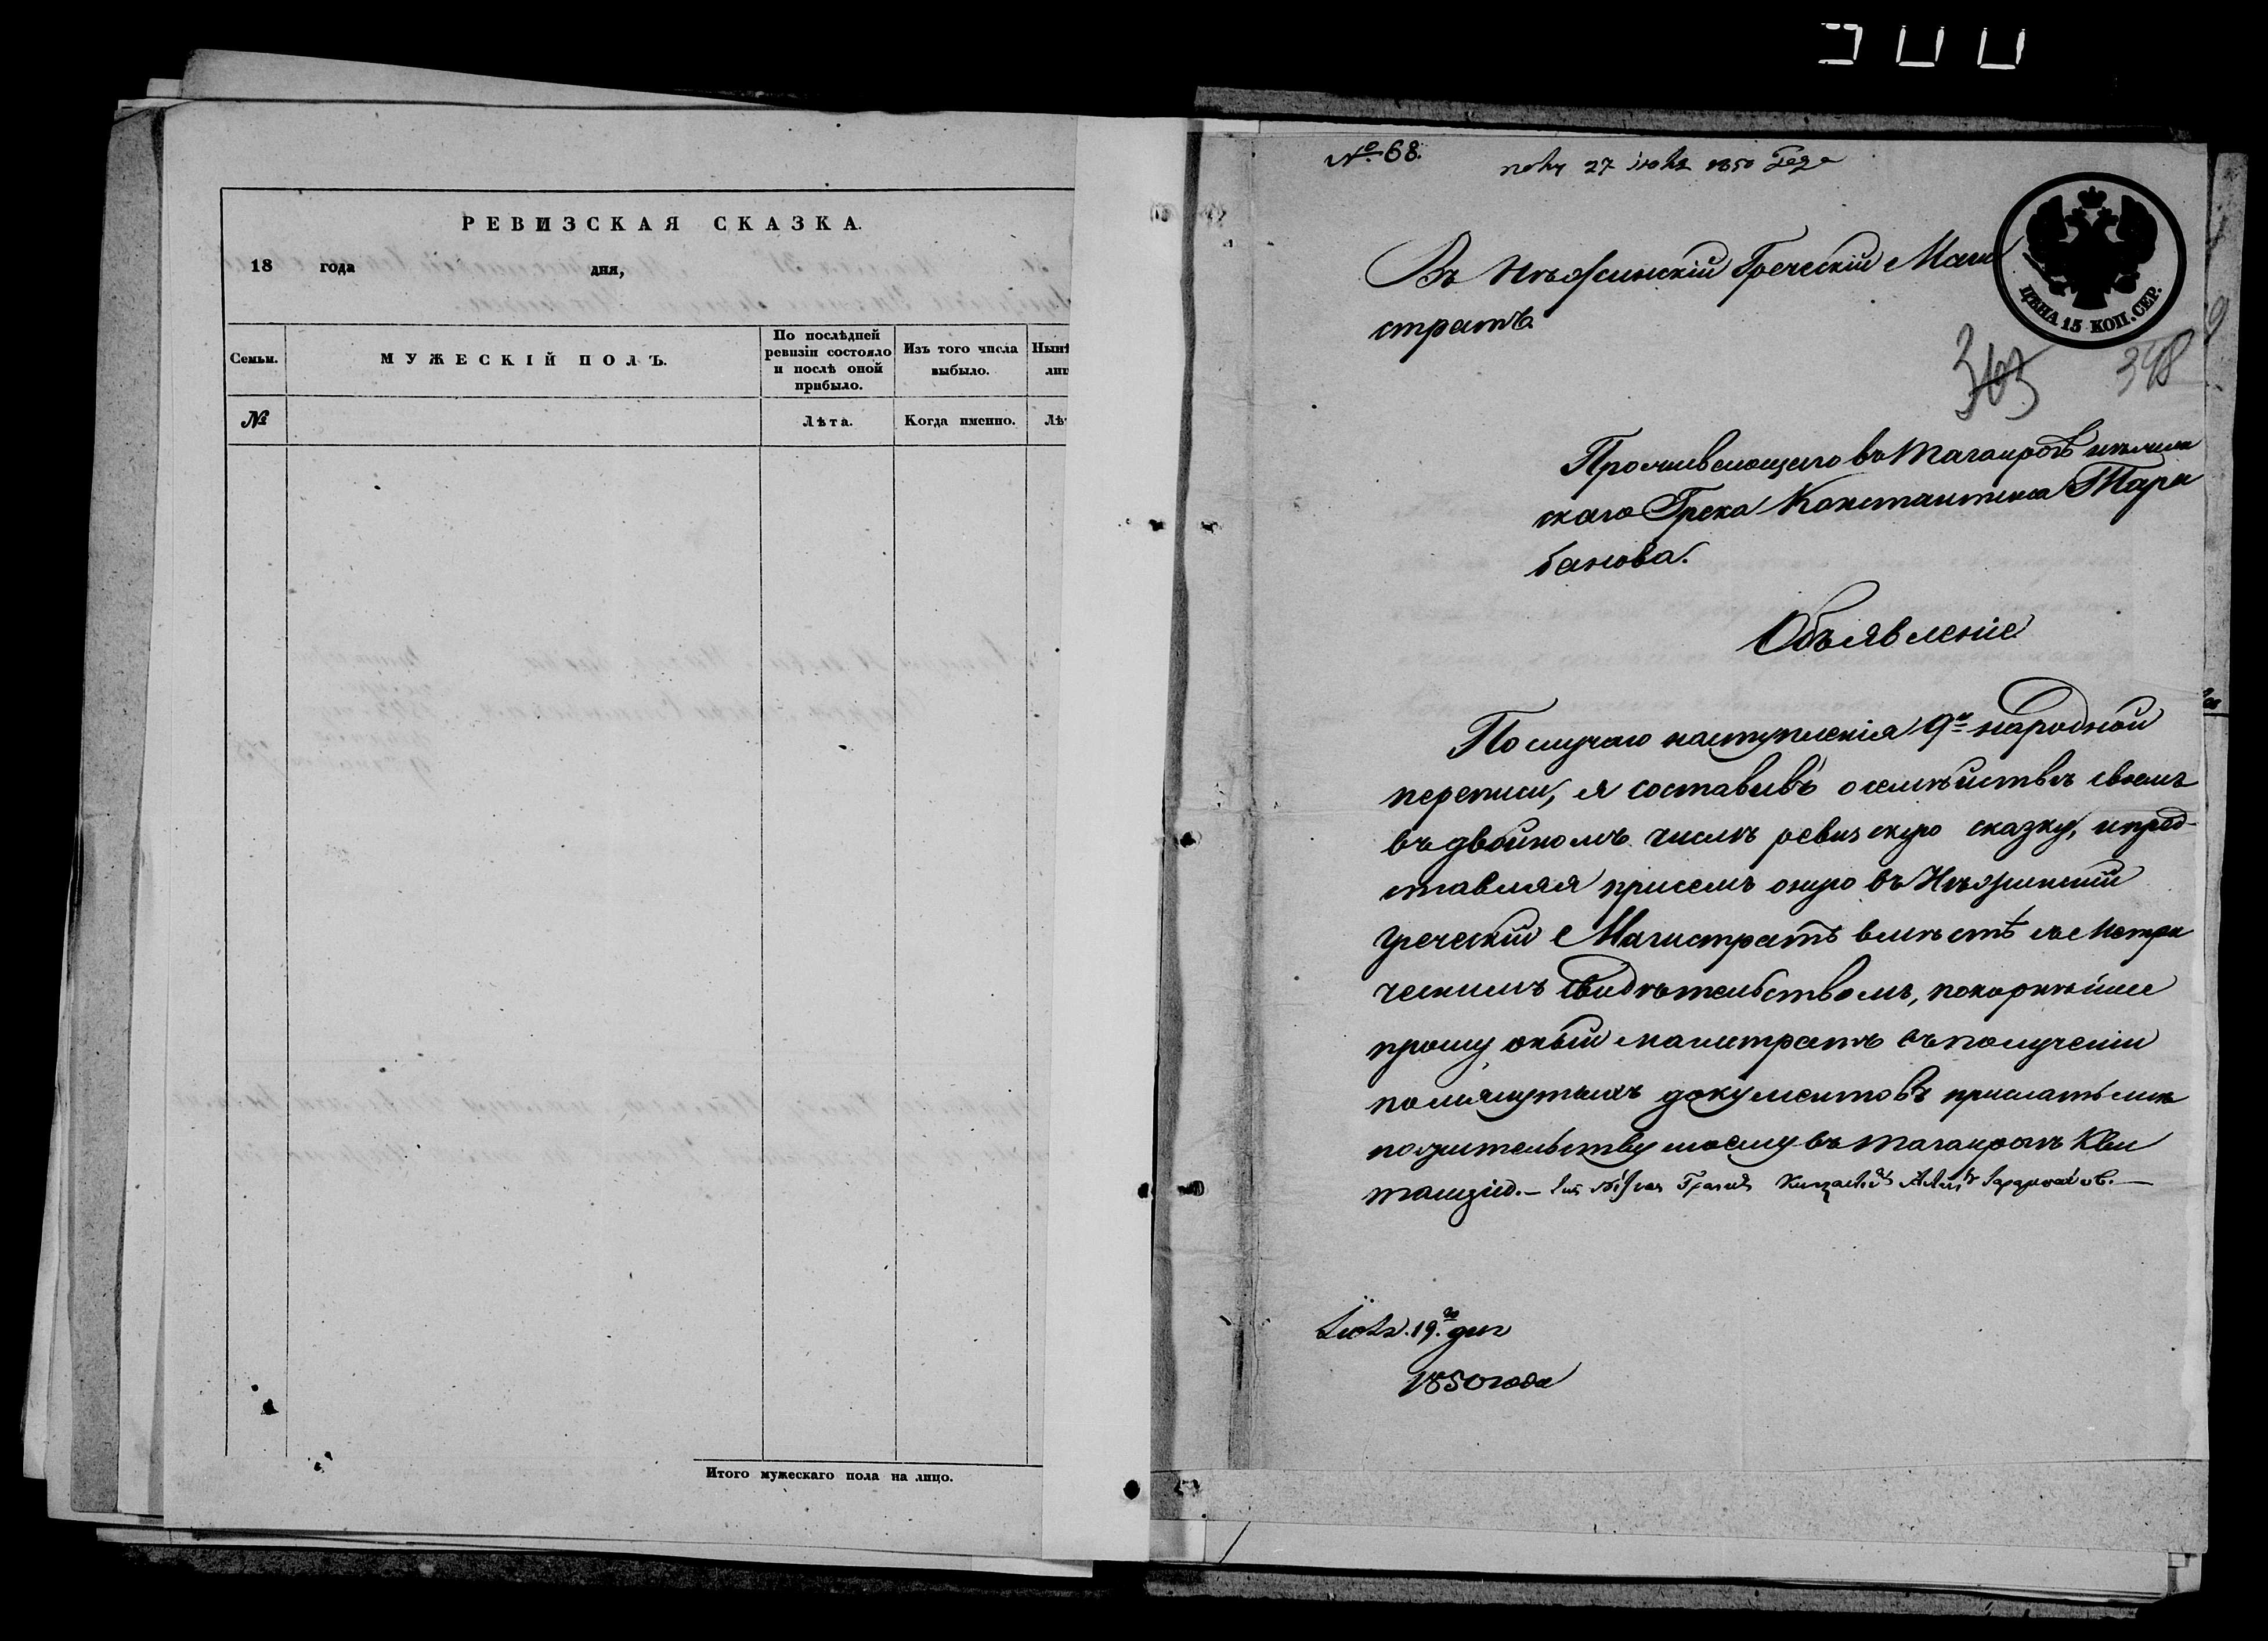 РЕВИЗСКАЯ СКАЗКА.
18 года дня,
Семьи.
МУЖЕСКІЙ ПОЛЪ.
По послѣдней ревизіи состояло и послѣ оной прибыло.
Изъ того числа выбыло.
№
Лѣта.
Когда именно.
Итого мужескаго пола на лицо.
№ 68.
27 1850 года
ЦѢНА 15 КОП. СЕР.
Въ Нѣжинскій Греческій Маги
стратъ
363 348
Проживающаго въ Таганрогѣ нѣжин
скаго Грека Константина Тара
банова.
Объявленіе
По случаю наступленія 9й народной
переписи, я составивъ о семѣйствѣ своемъ
въ двойномъ числѣ ревизскую сказку, и пред-
ставляя присемъ оную въ Нѣжинскій
Греческій Магистратъ вмѣстѣ съ Метри
ческимъ свидѣтельствомъ, покорнѣйше
прошу оный магистратъ въ полученіи
помянутыхъ документовъ прислать мнѣ
по жительству моему въ Таганрогѣ Кви
танцію.—
19го дня
1850 года